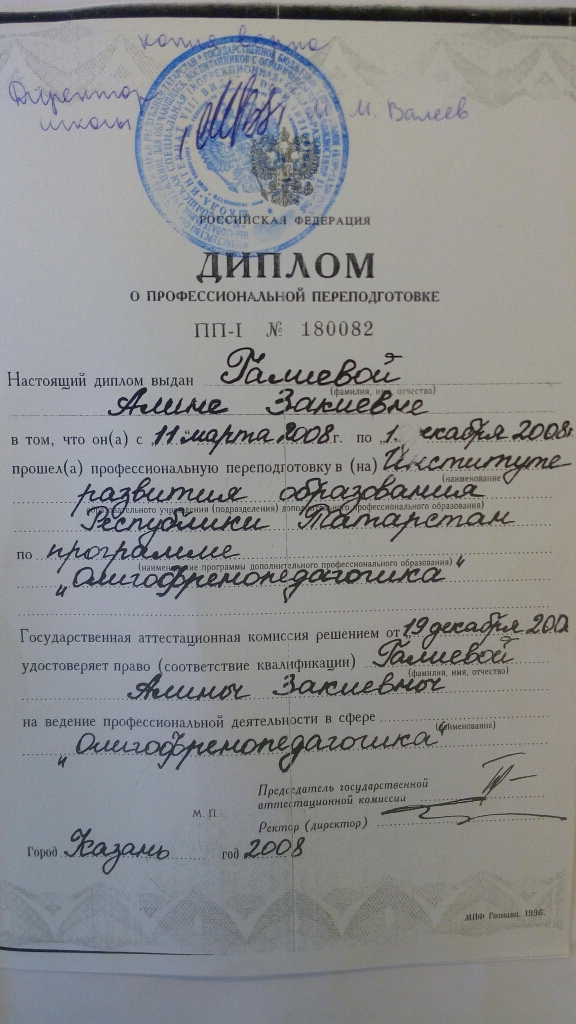 копия верна
Директор
школы
М. М. Валеев
РОССИЙСКАЯ ФЕДЕРАЦИЯ
ДИПЛОМ
О ПРОФЕССИОНАЛЬНОЙ ПЕРЕПОДГОТОВКЕ
ПП-I № 180082
Настоящий диплом выдан Галиевой
(фамилия, имя, отчество)
Алине Закиевне
в том, что он(а) с „11“ марта 2008 г. по „1 екабря 2008г.
прошел(а) профессиональную переподготовку в (на) Институте
(наименование
развития образования
образовательного учреждения (подразделения) дополнительного профессионального образования)
Республики Татарстан
по программе
(наименование программы дополнительного профессионального образования)
„Олигофренопедагогика“
Государственная аттестационная комиссия решением от „19 декабря 200
удостоверяет право (соответствие квалификации) Галиевой
(фамилия, имя, отчество)
Алины Закиевны
на ведение профессиональной деятельности в сфере
(наименование)
„Олигофренопедагогика“
Председатель государственной
аттестационной комиссии
М. П.
Ректор (директор)
Город Казань год 2008
МПФ Гознака. 1996.